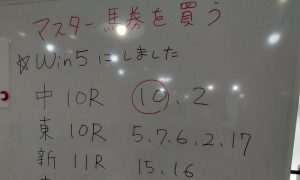 マスター馬券を買う
☆Win5にしました
中 10R ⑩.2
東 10R 5.7.6.2.17
新 11R 15.16